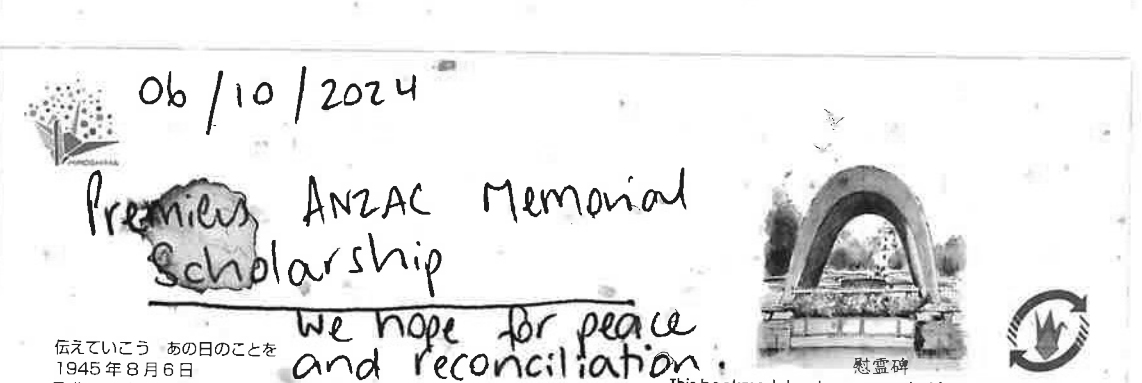 06/10/2024
HIROSHIMA
Premiers ANZAC Memorial
Scholarship
We hope for peace
and reconciliation.
伝えていこう あの日のことを
1945年8月6日
慰霊碑